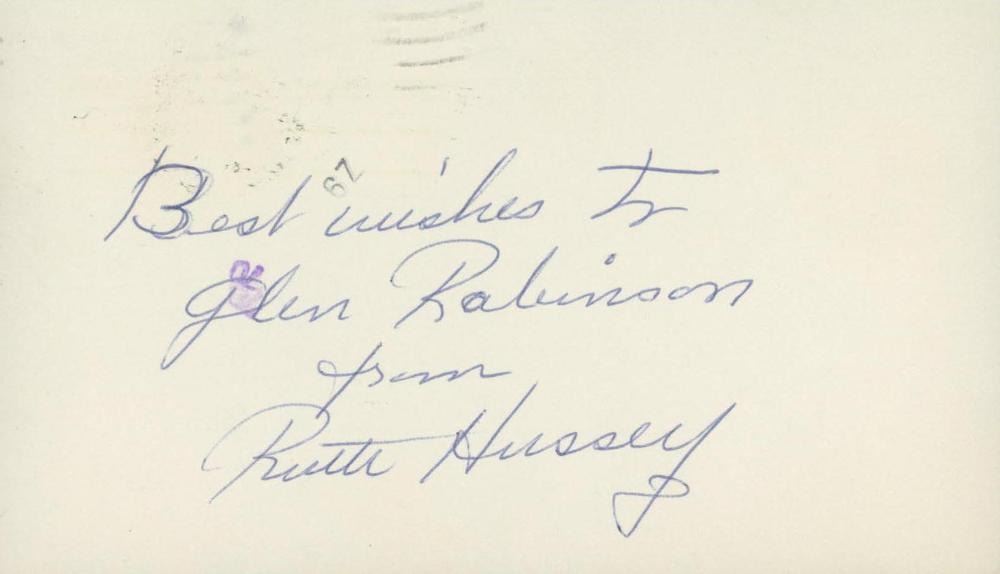 Best wishes to
Glen Robinson
from
Ruth Hussey
67